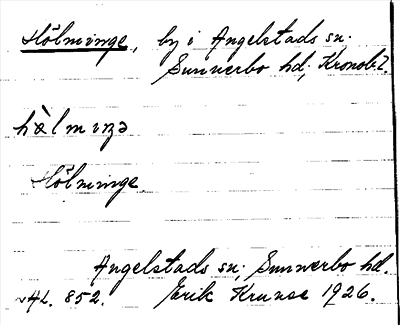 Hölminge, by i Angelstads sn.
Sunnerbo hd, Kronob. l.
hö̀lmıŋə
Hölminge
Angelstads sn, Sunnerbo hd.
AL. 852. Erik Kruuse 1926.